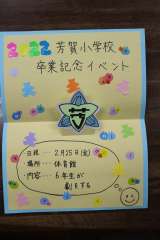 2022 芳賀小学校
卒業記念イベント
芳
日時…2月25日(金)
場所…体育館
内容…6年生が
劇をする